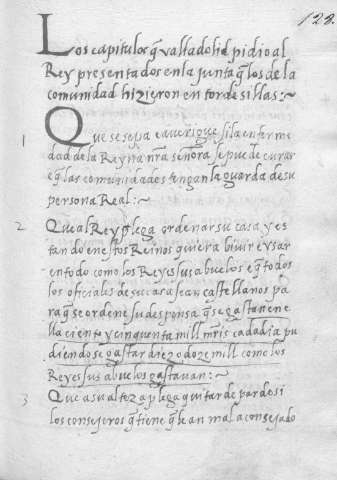 128.
Los capitulos q̃ valladolid pidio al
Rey presentados en la junta q̃ los de la
comunidad hizieron en tordesillas:~
1
Que se sepa e averigue si la enferme
dad de la Reyna nr̃a señora se puede curar
e q̃ las comunidades tengan la guarda de su
persona Real:~
2
Que al Rey plega ordenar su casa, y es
tando en estos Reinos quiera biuir e ysar
en todo como los Reyes sus abuelos e q̃ todos
los oficiales de su casa sean castellanos pa
ra q̃ se ordene su despensa q̃ se gastan en e
lla ciento y cinquenta mill mr̃is cada dia pu
diendose gastar diez o doze mill como los
Reyes sus abuelos gastauan:~
3
Que a su alteza plega quitar de par de si
los consejeros q̃ tiene q̃ le an mal aconsejado